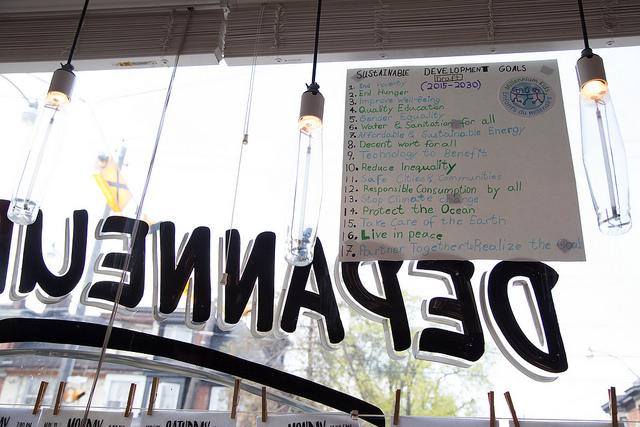 SUSTAINABLE DEVELOPMENT GOALS
Draft
(2015-2030)
1. End Poverty
2. End Hunger
3. Improve Well-Being
4. Quality Education
5. Gender Equality
6. Water & Sanitation for all
7. Affordable & Sustainable Energy
8. Decent work for all
9. Technology to Benefit
10. Reduce Inequality
11. Safe Cities & Communities
12. Responsible Consumption by all
13. Stop Climate change
14. Protect the Ocean
15. Take Care of the Earth
16. Live in peace
17. Partner Together to Realize the Goal
DEPANNEU
MONDAY
SATURDAY
MONDAY